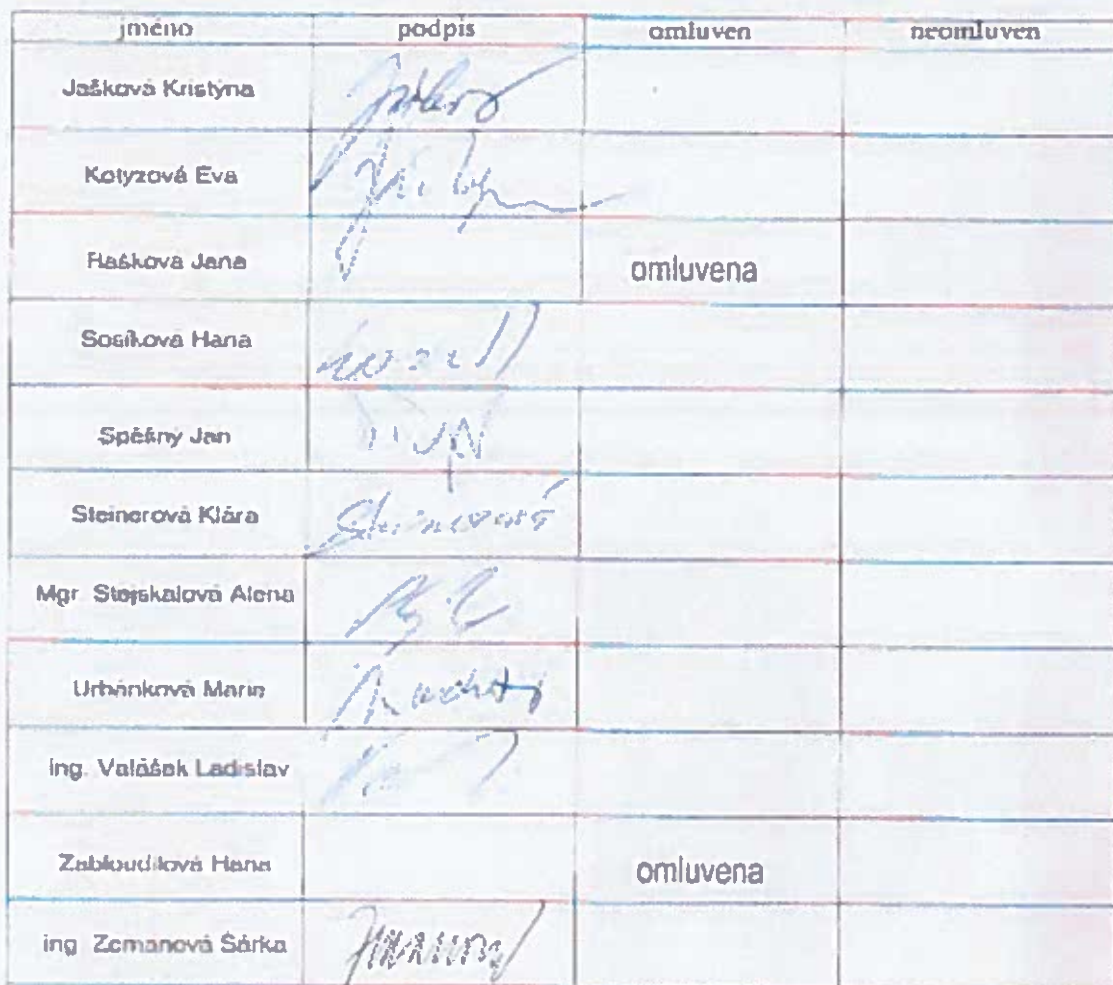 jméno podpis omluven neomluven
Jašková Kristýna
Kotyzová Eva
Rašková Jana omluvena
Sosíková Hana
Spěšný Jan
Steinerová Klára Steinerová
Mgr. Stejskalová Alena
Urbánková Marie
ing. Valášek Ladislav
Zabloudilová Hana omluvena
ing. Zemanová Šárka